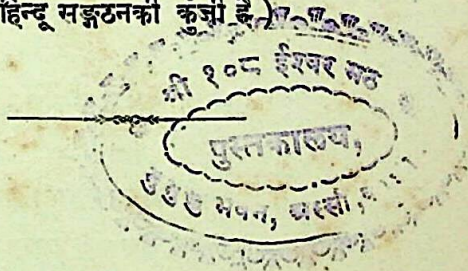 हिन्दू सङ्गठनकी कुंजी है )
श्री १०८ ईश्वर मठ
पुस्तकालय,
भवन, अस्सी,